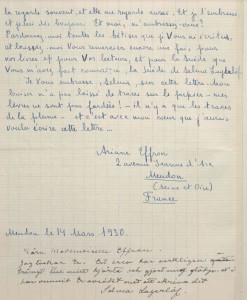 la regarde souvent, et elle me regarde aussi. Et je l'embrasse
et pleure de bonheur. Et vous, m'embrassez-vous?
Pardonnez-moi toutes les bêtises que je Vous ai écrites,
et laissez-moi Vous remercier encore une fois, pour
vos livres et pour Vos lettres, et pour la Suède que
Vous m'avez fait connaître, la Suède de Selma Lagerlöf.
Je Vous embrasse, Selma, sur cette lettre. Mon
baiser n'a pas laissé de traces sur le papier - mes
lèvres ne sont pas fardées! - il n'y a que les traces
de la plume - et c'est avec mon cœur que j'aurais
voulu écrire cette lettre...
Ariane Effron
2 avenue Jeanne d'Arc
Meudon
(Seine et Oise)
France
Meudon le 14 Mars 1930.
Kära Mademoiselle Effron.
Jag
Ert brev har verkligen
mitt hjärta och gjort mig
Selma Lagerlöf.